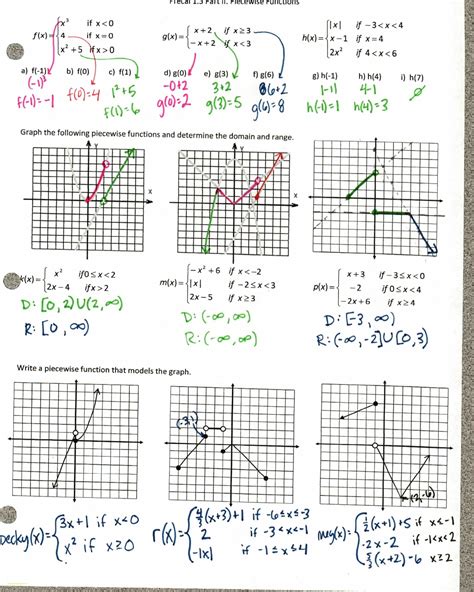 Precal 1.3 Part II: Piecewise Functions
f(x)= x³ if x<0
4 if x=0
x²+5 if x>0
g(x)= x+2, if x≥3
-x+2 if x<3
h(x)= |x| if -3<x<4
x-1 if x=4
2x² if 4<x<6
a) f(-1) b) f(0) c) f(1) d) g(0) e) g(3) f) g(6) g) h(-1) h) h(4) i) h(7)
(-1)³ f(0)=4 1²+5 -0+2 3+2 6+2 |-1| 4-1 ∅
f(-1)=-1 f(1)=6 g(0)=2 g(3)=5 g(6)=8 h(-1)=1 h(4)=3
Graph the following piecewise functions and determine the domain and range.
y y
x x x
k(x)= x² if 0≤x<2
2x-4 if x>2
m(x)= -x²+6 if x<-2
|x| if -2≤x<3
2x-5 if x≥3
p(x)= x+3 if -3≤x<0
-2 if 0≤x<4
-2x+6 if x≥4
D: [0,2)U(2,∞) D: (-∞,∞) D: [-3,∞)
R: [0,∞) R: (-∞,∞) R: (-∞,-2]U[0,3)
Write a piecewise function that models the graph.
(-3,1)
(2,-6)
Decky(x)= 3x+1 if x<0
x² if x≥0
r(x)= 4/3(x+3)+1 if -6≤x≤-3
2 if -3<x<-1
-|x| if -1≤x≤4
meg(x)= 1/2(x+1)+5 if x<-1
-2x-2 if -1<x<2
5/3(x+2)-6 x≥2